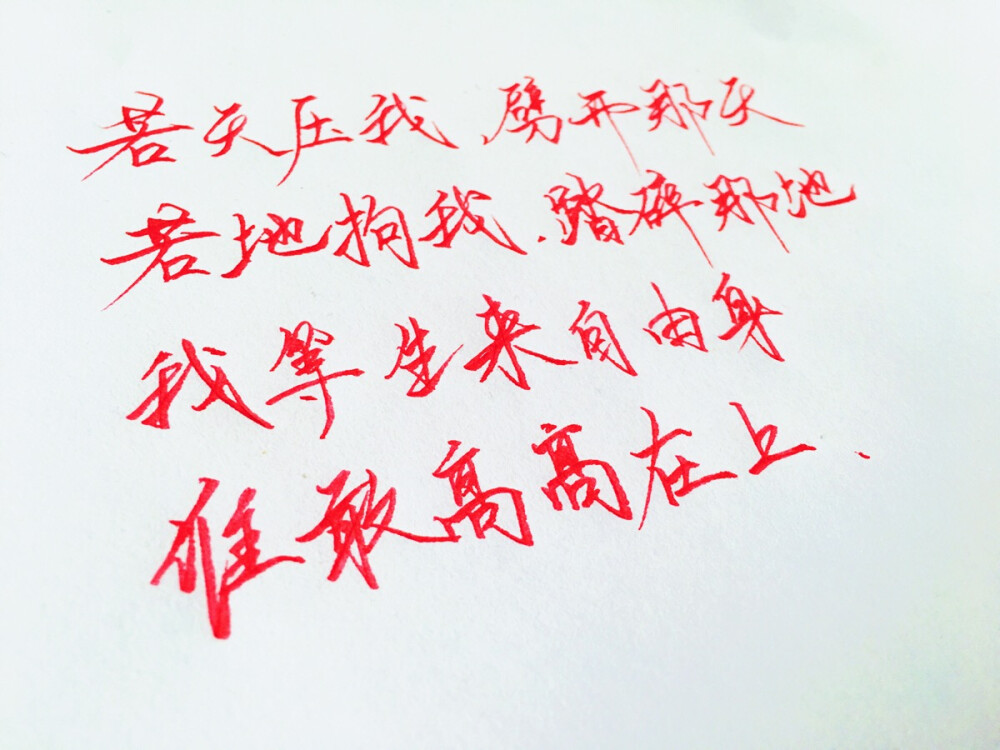 若天压我,劈开那天
若地拘我,踏碎那地
我等生来自由身
谁敢高高在上.